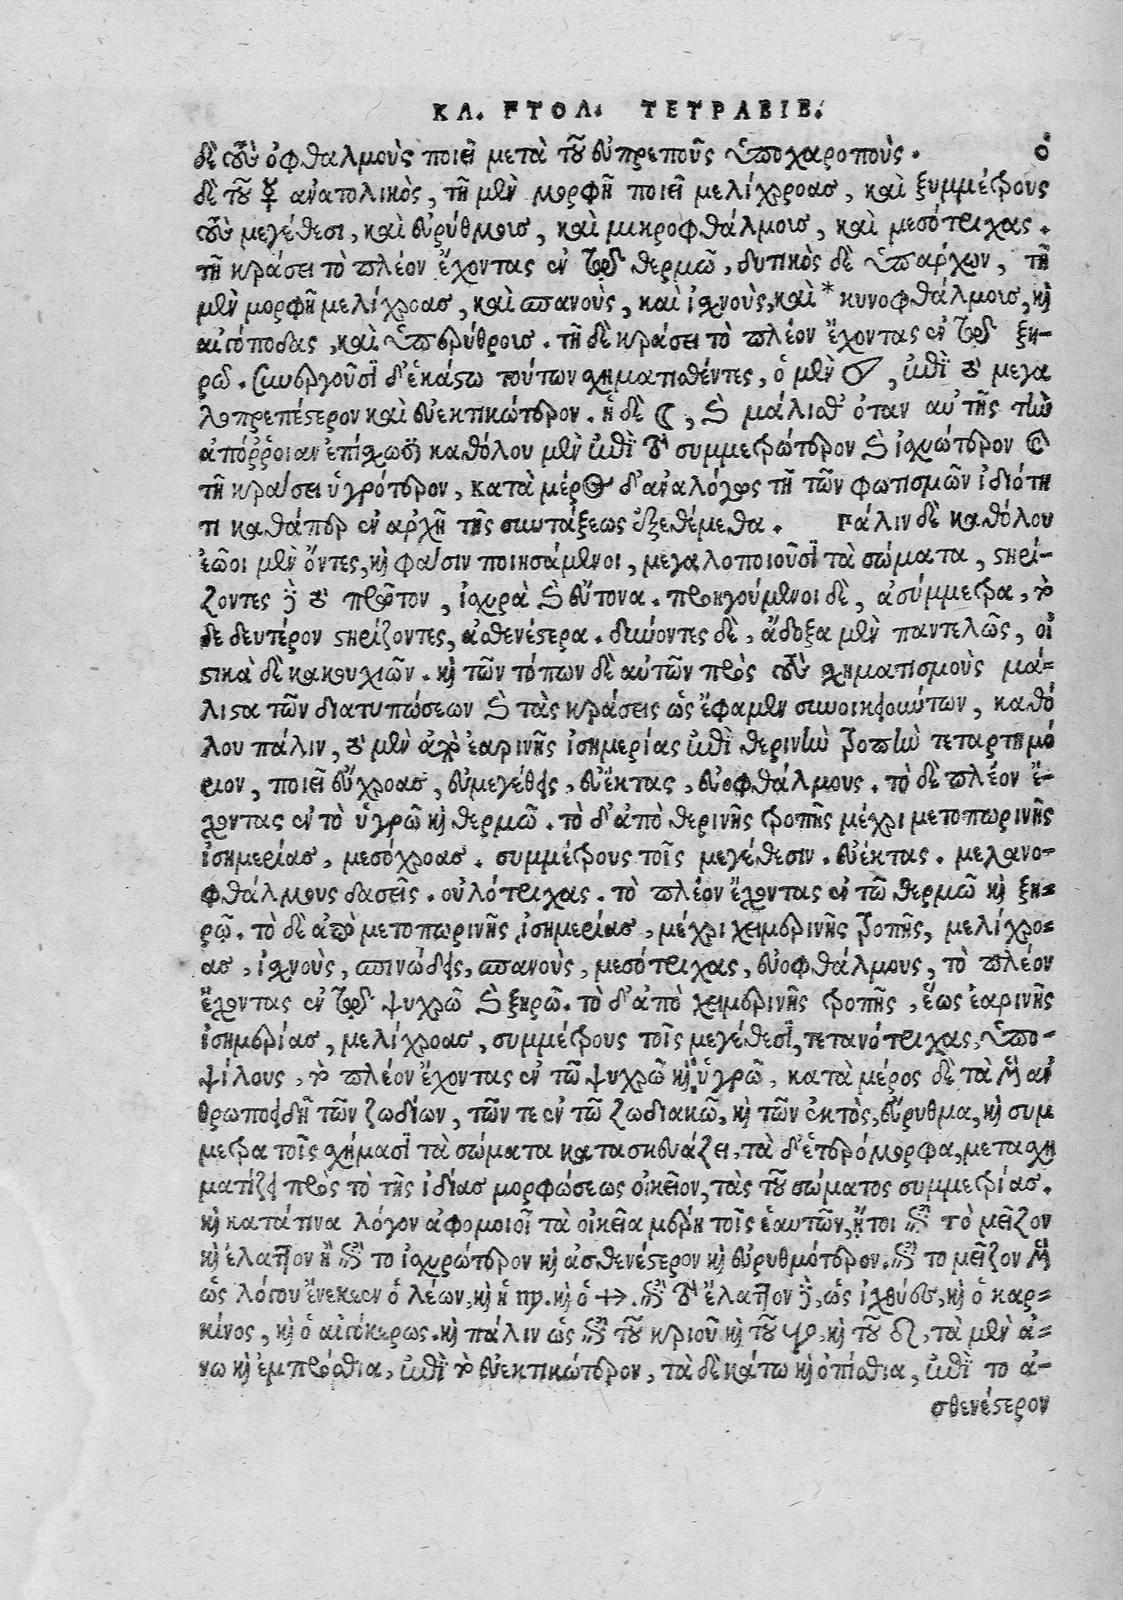 ΚΛ. ΠΤΟΛ. ΤΕΤΡΑΒΙΒ.
δὲ τοὺς ὀφθαλμοὺς ποιεῖ μετὰ τοῦ εὐπρεποῦς ὑποχαροποὺς. ὁ
δὲ τοῦ ☿ ἀνατολικὸς, τῇ μὲν μορφῇ ποιεῖ μελίχροας, καὶ ξυμμέτρους
τοῖς μεγέθεσι, καὶ εὐρύθμοις, καὶ μικροφθάλμοις, καὶ μεσότριχας.
τῇ κράσει τὸ πλέον ἔχοντας ἐν τῷ θερμῶ, δυτικὸς δὲ ὑπάρχων, τῇ
μὲν μορφῇ μελίχροας, καὶ σπανοὺς, καὶ ἰχνοὺς, καὶ * κυνοφθάλμοις, καὶ
αἰγόποδας, καὶ ὑπερύθροις. τῇ δὲ κράσει τὸ πλέον ἔχοντας ἐν τῷ ξη-
ρῷ. συνεργοῦσι δ' ἑκάστω τούτων σχηματισθέντες, ὁ μὲν ☉, ἐπὶ τὸ μεγα
λοπρεπέστερον καὶ εὐεκτικώτερον. ἡ δὲ ☾, καὶ μάλισθ' ὅταν αὐτῆς τὴν
ἀπόῤῥοιαν ἐπίσχωσι καθόλου μὲν ἐπὶ τὸ συμμετρώτερον καὶ ἰσχνώτερον καὶ
τῇ κράσει ὑγρότερον, κατὰ μέρος δ' ἀναλόγως τῇ τῶν φωτισμῶν ἰδιότη
τι καθάπερ ἐν ἀρχῇ τῆς συντάξεως ἐξεθέμεθα. Πάλιν δὲ καθόλου
ἑῶοι μὲν ὄντες, καὶ φάσιν ποιησάμενοι, μεγαλοποιοῦσι τὰ σώματα, στηρί-
ζοντες δὲ τὸ πρῶτον, ἰσχυρὰ καὶ εὔτονα. προηγούμενοι δὲ, ἀσύμμετρα, τὸ
δε δευτέρον στηρίζοντες, ἀσθενέστερα. δυνόντες δὲ, ἄδοξα μὲν παντελῶς, οἰ
στικὰ δὲ κακουχιῶν. καὶ τῶν τόπων δὲ αὐτῶν πρὸς τοὺς σχηματισμοὺς μά-
λιστα τῶν διατυπώσεων καὶ τὰς κράσεις ὡς ἔφαμεν συνοικειούντων, καθό
λου πάλιν, τὸ μὲν ἀπὸ ἐαρινῆς ἰσημερίας ἐπὶ θερινὴν τροπὴν τεταρτημό
ριον, ποιεῖ εὔχροας, εὐμεγέθεις, εὐέκτας, εὐοφθάλμους. τὸ δὲ πλέον ἔ-
χοντας ἐν τὸ ὑγρῶ καὶ θερμῶ. τὸ δ' ἀπὸ θερινῆς τροπῆς μέχρι μετοπωρινῆς
ἰσημερίας, μεσόχροας. συμμέτρους τοῖς μεγέθεσιν. εὐέκτας. μελανο-
φθάλμους δασεῖς. οὐλότριχας. τὸ πλέον ἔχοντας ἐν τῶ θερμῶ καὶ ξη-
ρῷ. τὸ δὲ ἀπὸ μετοπωρινῆς ἰσημερίας, μέχρι χειμερινῆς τροπῆς, μελίχρο-
ας, ἰχνοὺς, σπινώδεις, σπανοὺς, μεσότριχας, εὐοφθάλμους, τὸ πλέον
ἔχοντας ἐν τῷ ψυχρῶ καὶ ξηρῶ. τὸ δ' ἀπὸ χειμερινῆς τροπῆς, ἕως ἐαρινῆς
ἰσημερίας, μελίχροας, συμμέτρους τοῖς μεγέθεσι, τετανότριχας, ὑπο-
ψίλους, τὸ πλέον ἔχοντας ἐν τῶ ψυχρῶ καὶ ὑγρῶ, κατὰ μέρος δὲ τὰ μὲν ἀν
θρωποειδῆ τῶν ζωδίων, τῶν τε ἐν τῶ ζωδιακῶ, καὶ τῶν ἐκτὸς, εὔρυθμα, καὶ συμ
μετρα τοῖς σχήμασι τὰ σώματα κατασκευάζει, τὰ δ' ἑτερόμορφα, μετασχη
ματίζει πρὸς τὸ τῆς ἰδίας μορφώσεως οἰκεῖον, τὰς τοῦ σώματος συμμετρίας.
καὶ κατάτινα λόγον ἀφομοιοῖ τὰ οἰκεῖα μέρη τοῖς ἑαυτῶν, ἤτοι ἐπὶ τὸ μεῖζον
καὶ ἔλαττον ἢ ἐπὶ το ἰσχυρώτερον καὶ ἀσθενέστερον καὶ εὐρυθμότερον. ἐπὶ το μεῖζον μὲν
ὡς λόγου ἕνεκεν ὁ λέων, καὶ ἡ ♍. καὶ ὁ ♐. ἐπὶ τὸ ἔλαττον δὲ, ὡς ἰχθύς, καὶ ὁ καρ-
κίνος, καὶ ὁ αἰγόκερως. καὶ πάλιν ὡς ἐπὶ τοῦ κριοῦ καὶ τοῦ ♉, καὶ τοῦ ♌, τὰ μὲν ἄ-
νω καὶ ἐμπρόσθια, ἐπὶ τὸ εὐεκτικώτερον, τὰ δὲ κάτω καὶ ὀπίσθια, ἐπὶ το ἀ-
σθενέστερον